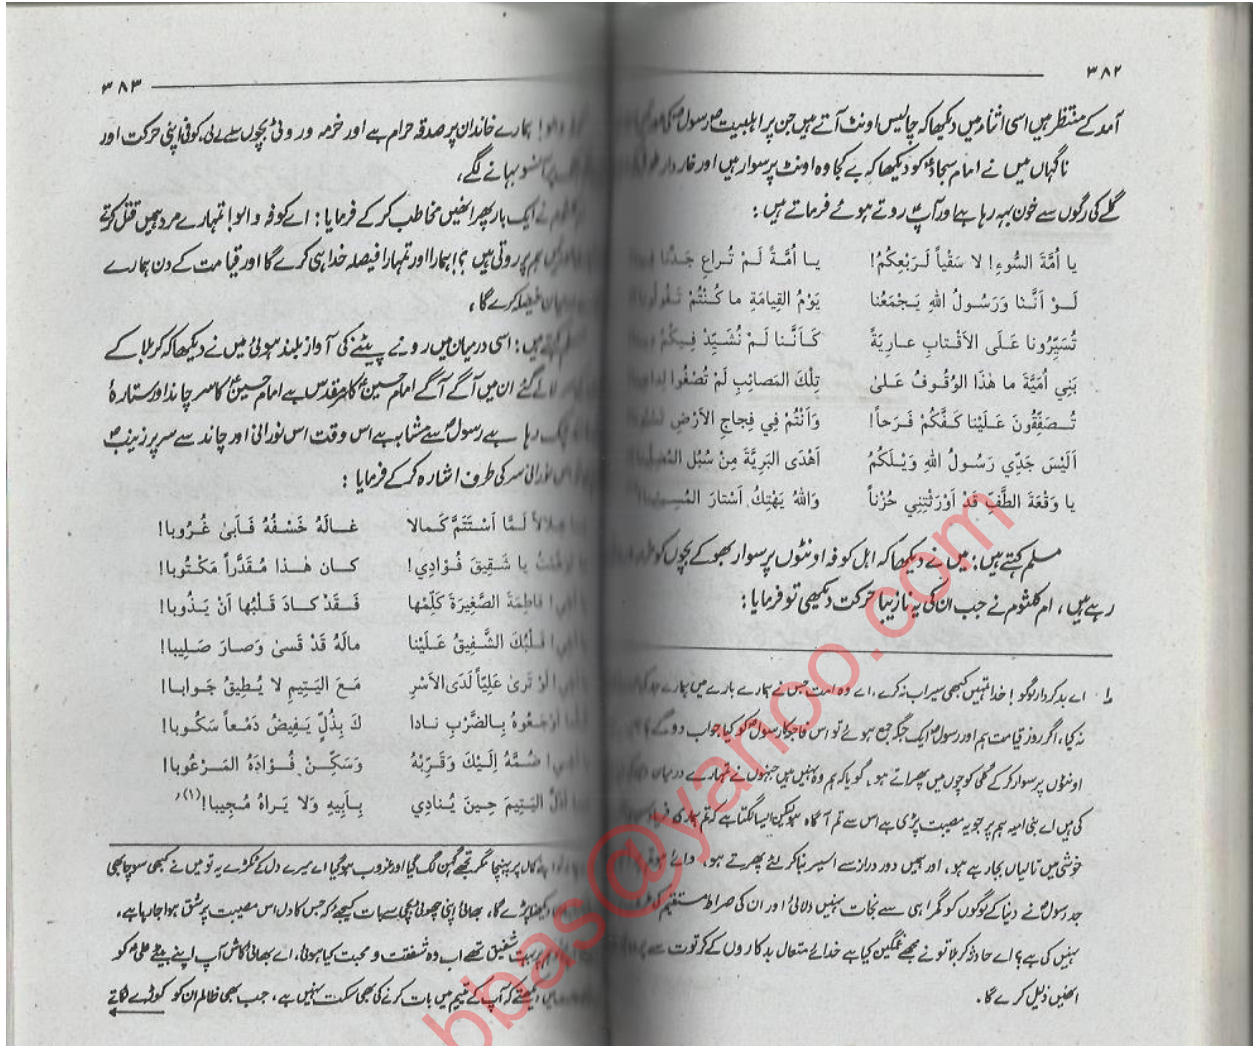 ۳۸۲
آمد کے منتظر ہیں اسی اثناء میں دیکھا کہ چالیس اونٹ آتے ہیں جن پر اہلبیت رسولؐ کی
ناگہاں میں نے امام سجادؑ کو دیکھا کہ بے کجاوہ اونٹ پر سوار ہیں اور خاردار
گلے کی رگوں سے خون بہہ رہا ہے اور آپؑ روتے ہوئے فرماتے ہیں:
يا أُمَّةَ السُّوءِ! لا سَقْياً لَرَبْعِكُمُ! يا أُمَّةً لَمْ تُراعِ جَدَّنا
لَوْ أَنَّنا وَرَسُولُ اللهِ يَجْمَعُنا يَوْمُ القِيامَةِ ما كُنْتُمْ تَقُولُونا
تُسَيِّرُونا عَلَى الأَقْتابِ عارِيَةً كَأَنَّنا لَمْ نُشَيِّدْ فِيكُمُ
بَنِي أُمَيَّةَ ما هٰذا الوُقُوفُ عَلىٰ تِلْكَ المَصائِبِ لَمْ تُصْغُوا
تُصَفِّقُونَ عَلَيْنا كَفَّكُمْ فَرَحاً! وَأَنْتُمْ فِي فِجاجِ الأَرْضِ
أَلَيْسَ جَدِّي رَسُولُ اللهِ وَيْلَكُمُ أَهْدَى البَرِيَّةَ مِنْ سُبُلِ
يا وَقْعَةَ الطَّفِّ قَدْ أَوْرَثْتِنِي حُزْناً وَاللهُ يَهْتِكُ أَسْتارَ
مسلم کہتے ہیں: میں نے دیکھا کہ اہل کوفہ اونٹوں پر سوار بھوکے بچوں کو
رہے ہیں، ام کلثوم نے جب ان کی یہ نازیبا حرکت دیکھی تو فرمایا:
۱۔ اے بدکردار لوگو! خدا تمہیں کبھی سیراب نہ کرے، اے وہ امت جس نے ہمارے بارے میں ہمارے
نہ کیا، اگر روز قیامت ہم اور رسولؐ ایک جگہ جمع ہوئے تو اس کو کیا جواب دو گے؟
اونٹوں پر سوار کر کے گلی کوچوں میں پھراتے ہو، گویا کہ ہم وہ نہیں ہیں جنہوں نے تمہارے درمیان
کی ہیں اے بنی امیہ ہم پر جو یہ مصیبت پڑی ہے اس سے تم آگاہ ہو لیکن ایسا لگتا ہے کہ تم ہماری
خوشی میں تالیاں بجا رہے ہو، اور ہمیں دور دراز سے اسیر بنا کر لئے پھرتے ہو، وائے ہو
جد رسولؐ نے دنیا کے لوگوں کو گمراہی سے نجات نہیں دلائی؟ اور ان کی صراط مستقیم کی
نہیں کی ہے؟ اے حادثۂ کربلا تو نے مجھے غمگین کیا ہے خدائے متعال بدکاروں کے کرتوت سے
انھیں ذلیل کرے گا۔
۳۸۳
ہمارے خاندان پر صدقہ حرام ہے اور خرمہ و روٹی بچوں سے لے لی، کوفی اپنی حرکت اور
آنسو بہانے لگے،
نے ایک بار پھر انھیں مخاطب کر کے فرمایا: اے کوفہ والو! تمہارے مرد ہمیں قتل کرتے
ہم پر روتی ہیں ہمارا اور تمہارا فیصلہ خدا ہی کرے گا اور قیامت کے دن ہمارے
فیصلہ کرے گا،
اسی درمیان میں رونے پیٹنے کی آواز بلند ہوئی میں نے دیکھا کہ کربلا کے
لائے گئے ان میں آگے آگے امام حسینؑ کا سر مقدس ہے امام حسینؑ کا سر چاند اور ستارۂ
رہا ہے رسولؐ سے مشابہ ہے اس وقت اس نورانی اور چاند سے سر پر زینبؑ
نورانی سر کی طرف اشارہ کر کے فرمایا:
هِلالاً لَمَّا اَسْتَتَمَّ كَمالا غالَهُ خَسْفُهُ فَأَبىٰ غُرُوبا!
يا شَقِيقَ فُؤادِي! كان هٰذا مُقَدَّراً مَكْتُوبا!
فاطِمَةَ الصَّغِيرَةَ كَلِّمْها فَقَدْ كادَ قَلْبُها أَنْ يَذُوبا!
قَلْبُكَ الشَّفِيقُ عَلَيْنا مالَهُ قَدْ قَسىٰ وَصارَ صَلِيبا!
لَوْ تَرىٰ عَلِيّاً لَدَى الأَسْرِ مَعَ اليَتِيمِ لا يُطِيقُ جَوابا!
أَوْجَعُوهُ بِالضَّرْبِ نادا كَ بِذُلٍّ يَفِيضُ دَمْعاً سَكُوبا!
ضُمَّهُ إِلَيْكَ وَقَرِّبْهُ وَسَكِّنْ فُؤادَهُ المَرْعُوبا!
أَذَلَّ اليَتِيمَ حِينَ يُنادِي بِأَبِيهِ وَلا يَراهُ مُجِيبا!(۱)،
کمال پر پہنچا مگر تجھے گہن لگ گیا اور غروب ہو گیا اے میرے دل کے ٹکڑے یہ تو میں نے کبھی سوچا بھی
دیکھنا پڑے گا، بھائی اپنی چھوٹی بچی سے بات کیجئے کہ جس کا دل اس مصیبت پر شق ہوا جا رہا ہے،
ہم پر بہت شفیق تھے اب وہ شفقت و محبت کیا ہوئی، اے بھائی کاش آپ اپنے بیٹے علیؑ کو
دیکھتے کہ آپ کے یتیم میں بات کرنے کی بھی سکت نہیں ہے، جب بھی ظالم ان کو کوڑے لگاتے
bbas@yahoo.com